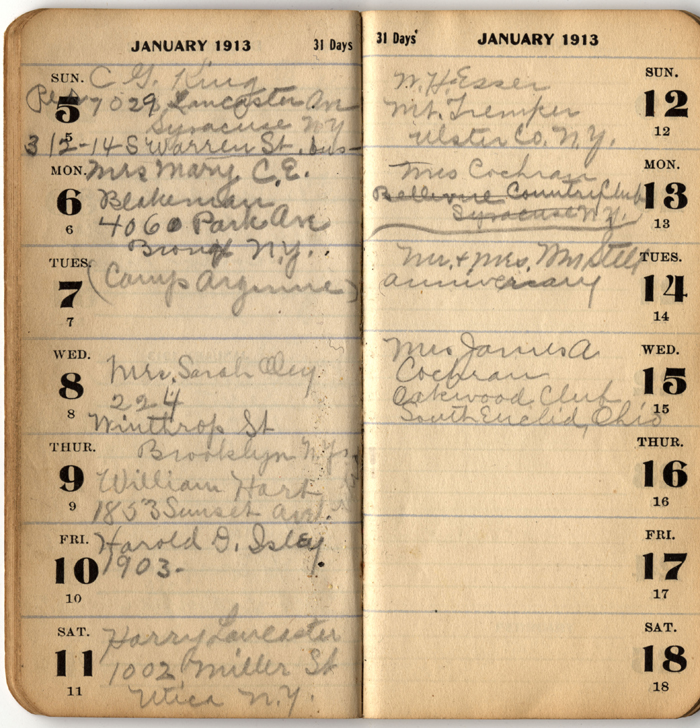 JANUARY 1913 31 Days
SUN. C G. King
Res 5 7029 Lancaster Ave
5 Syracuse NY
312-14 S Warren St. bus-
MON. Mrs Mary C. E.
6 Blakeman
6 4060 Park Ave
Bronx N.Y.
TUES. (Camp Argonne)
7
7
WED.
8 Mrs. Sarah Oley
8 224
Winthrop St
THUR. Brooklyn N.Y.
9 William Hart
9 1853 Sunset Ave.
FRI. Harold D. Isley
10 1903-
10
SAT. Harry Lancaster
11 1002 Miller St
11 Utica N.Y.
31 Days JANUARY 1913
W. H. Esser SUN.
Mt. Tremper 12
Ulster Co. N.Y. 12
Mrs Cochran MON.
Bellevue Country Club 13
Syracuse N.Y. 13
Mr. + Mrs. Wm Stell TUES.
anniversary 14
14
Mrs James A WED.
Cochran 15
Oakwood Club 15
South Euclid, Ohio
THUR.
16
16
FRI.
17
17
SAT.
18
18